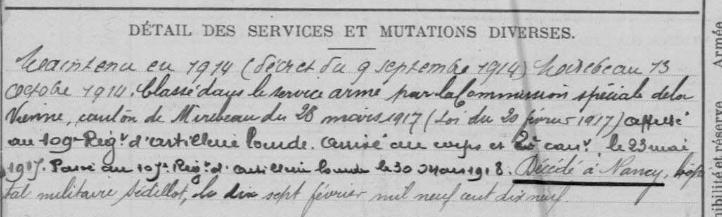 DÉTAIL DES SERVICES ET MUTATIONS DIVERSES.
Maintenu en 1914 (décret du 9 septembre 1914) Mirebeau 13
octobre 1914. Classé dans le service armé par la Commission spéciale de la
Vienne, canton de Mirebeau du 28 mars 1917 (Loi du 20 février 1917) affecté
au 109e Régt d'artillerie lourde. Arrivé au corps et 2e can. le 23 mai
1917. Passé au 107e Régt d'artillerie lourde le 30 Mars 1918. Décédé à Nancy, hôpi
tal militaire Sédillot, le dix sept février mil neuf cent dix neuf.
Armée
ibilité et réserve